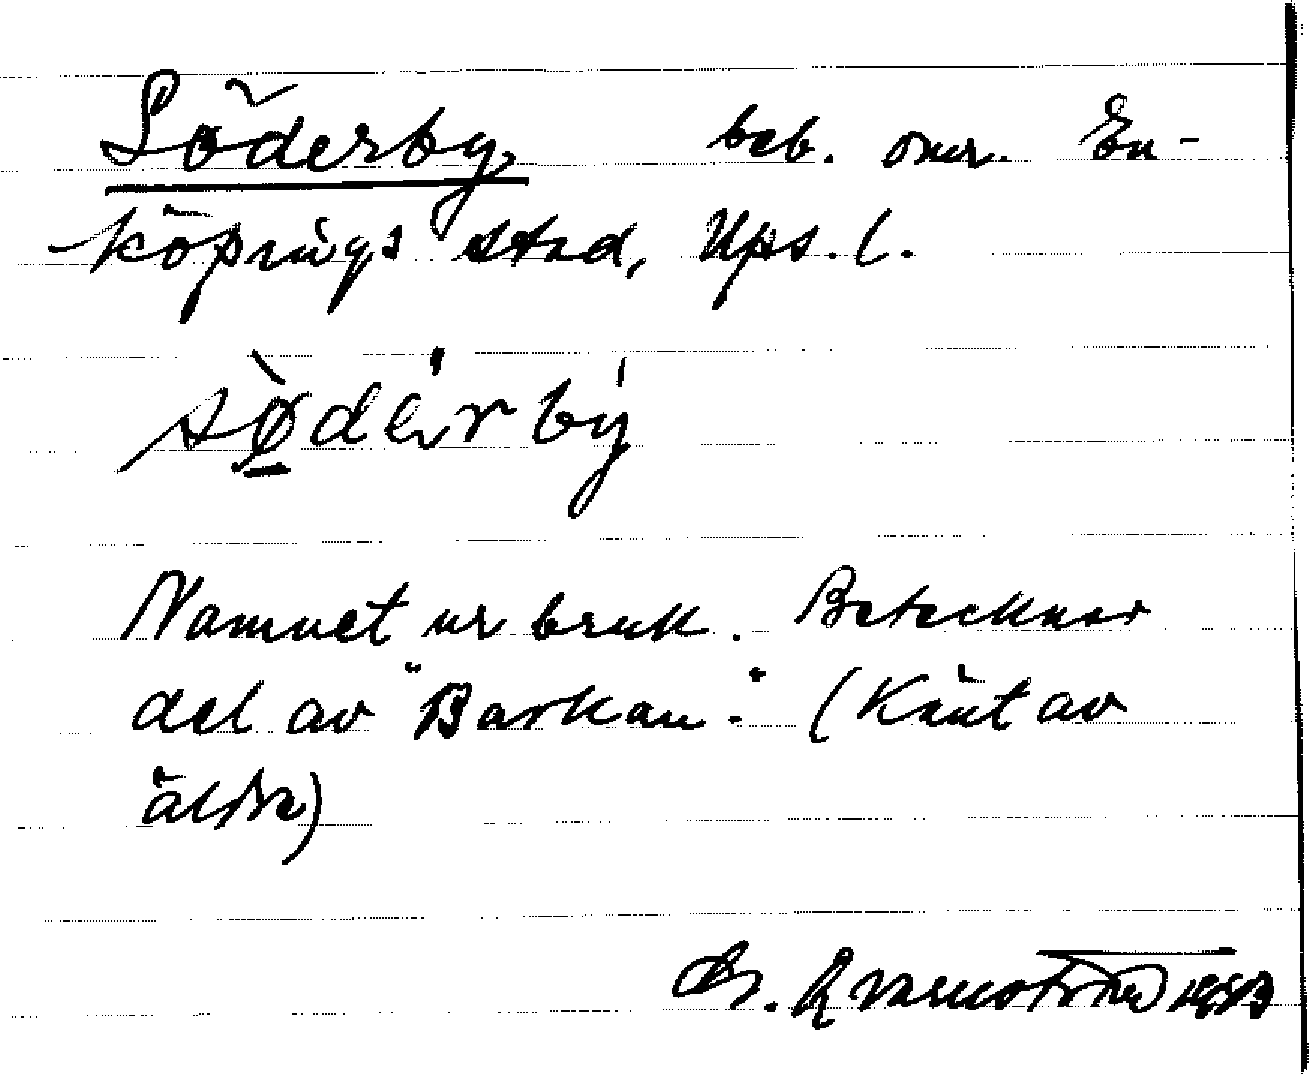 Söderby beb. omr. En-
köpings stad, Ups. l.
sø̀dərby
Namnet ur bruk. Betecknar
del av "Barkan." (Känt av
äldre)